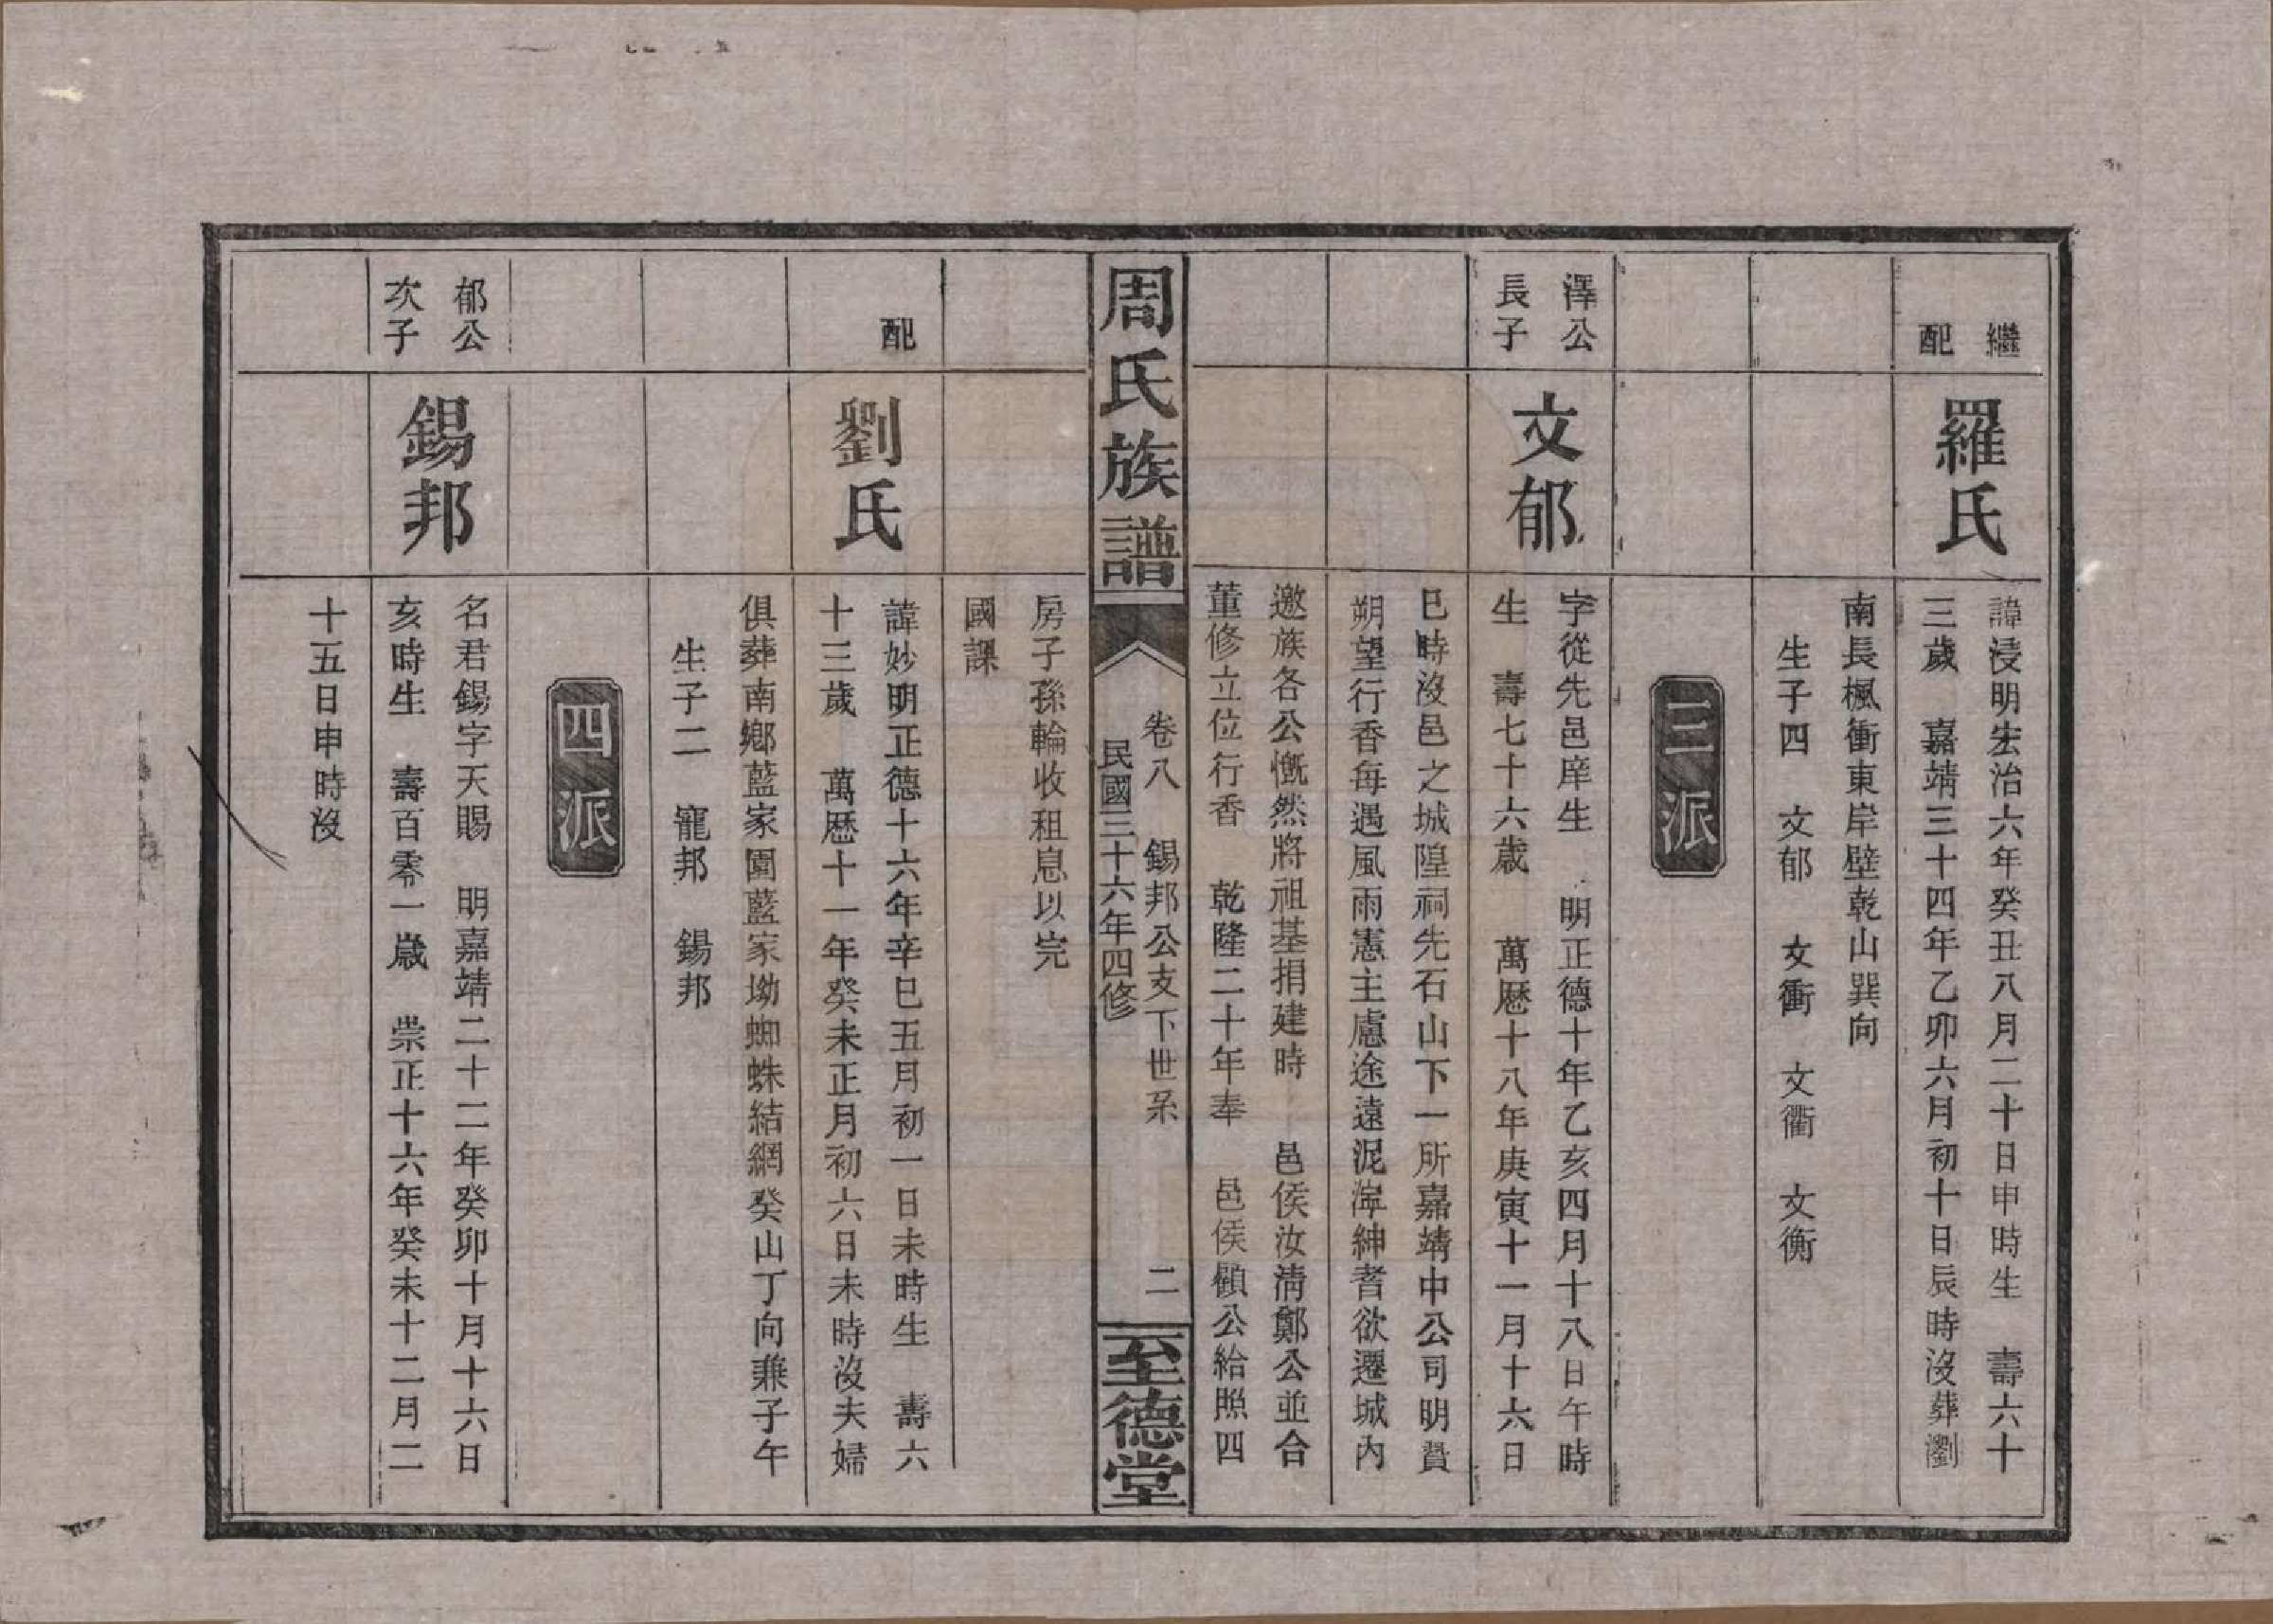 繼
配
羅氏
諱浸明宏治六年癸丑八月二十日申時生　壽六十
三歲　嘉靖三十四年乙卯六月初十日辰時沒葬瀏
南長楓衝東岸壁乾山巽向
生子四　文郁　文衝　文衢　文衡
三派
澤公
長子
文郁
字從先邑庠生　明正德十年乙亥四月十八日午時
生　壽七十六歲　萬歷十八年庚寅十一月十六日
巳時沒邑之城隍祠先石山下一所嘉靖中公司明貲
朔望行香每遇風雨憲主慮途遠泥濘紳耆欲遷城內
邀族各公慨然將祖基捐建時　邑侯汝淸鄭公並合
董修立位行香　乾隆二十年奉　邑侯顧公給照四
周氏族譜
卷八　錫邦公支下世系　二
民國三十六年四修
至德堂
房子孫輪收租息以完
國課
配
劉氏
諱妙明正德十六年辛巳五月初一日未時生　壽六
十三歲　萬歷十一年癸未正月初六日未時沒夫婦
俱葬南鄉藍家園藍家坳蜘蛛結網癸山丁向兼子午
生子二　寵邦　錫邦
四派
郁公
次子
錫邦
名君錫字天賜　明嘉靖二十二年癸卯十月十六日
亥時生　壽百零一歲　崇正十六年癸未十二月二
十五日申時沒